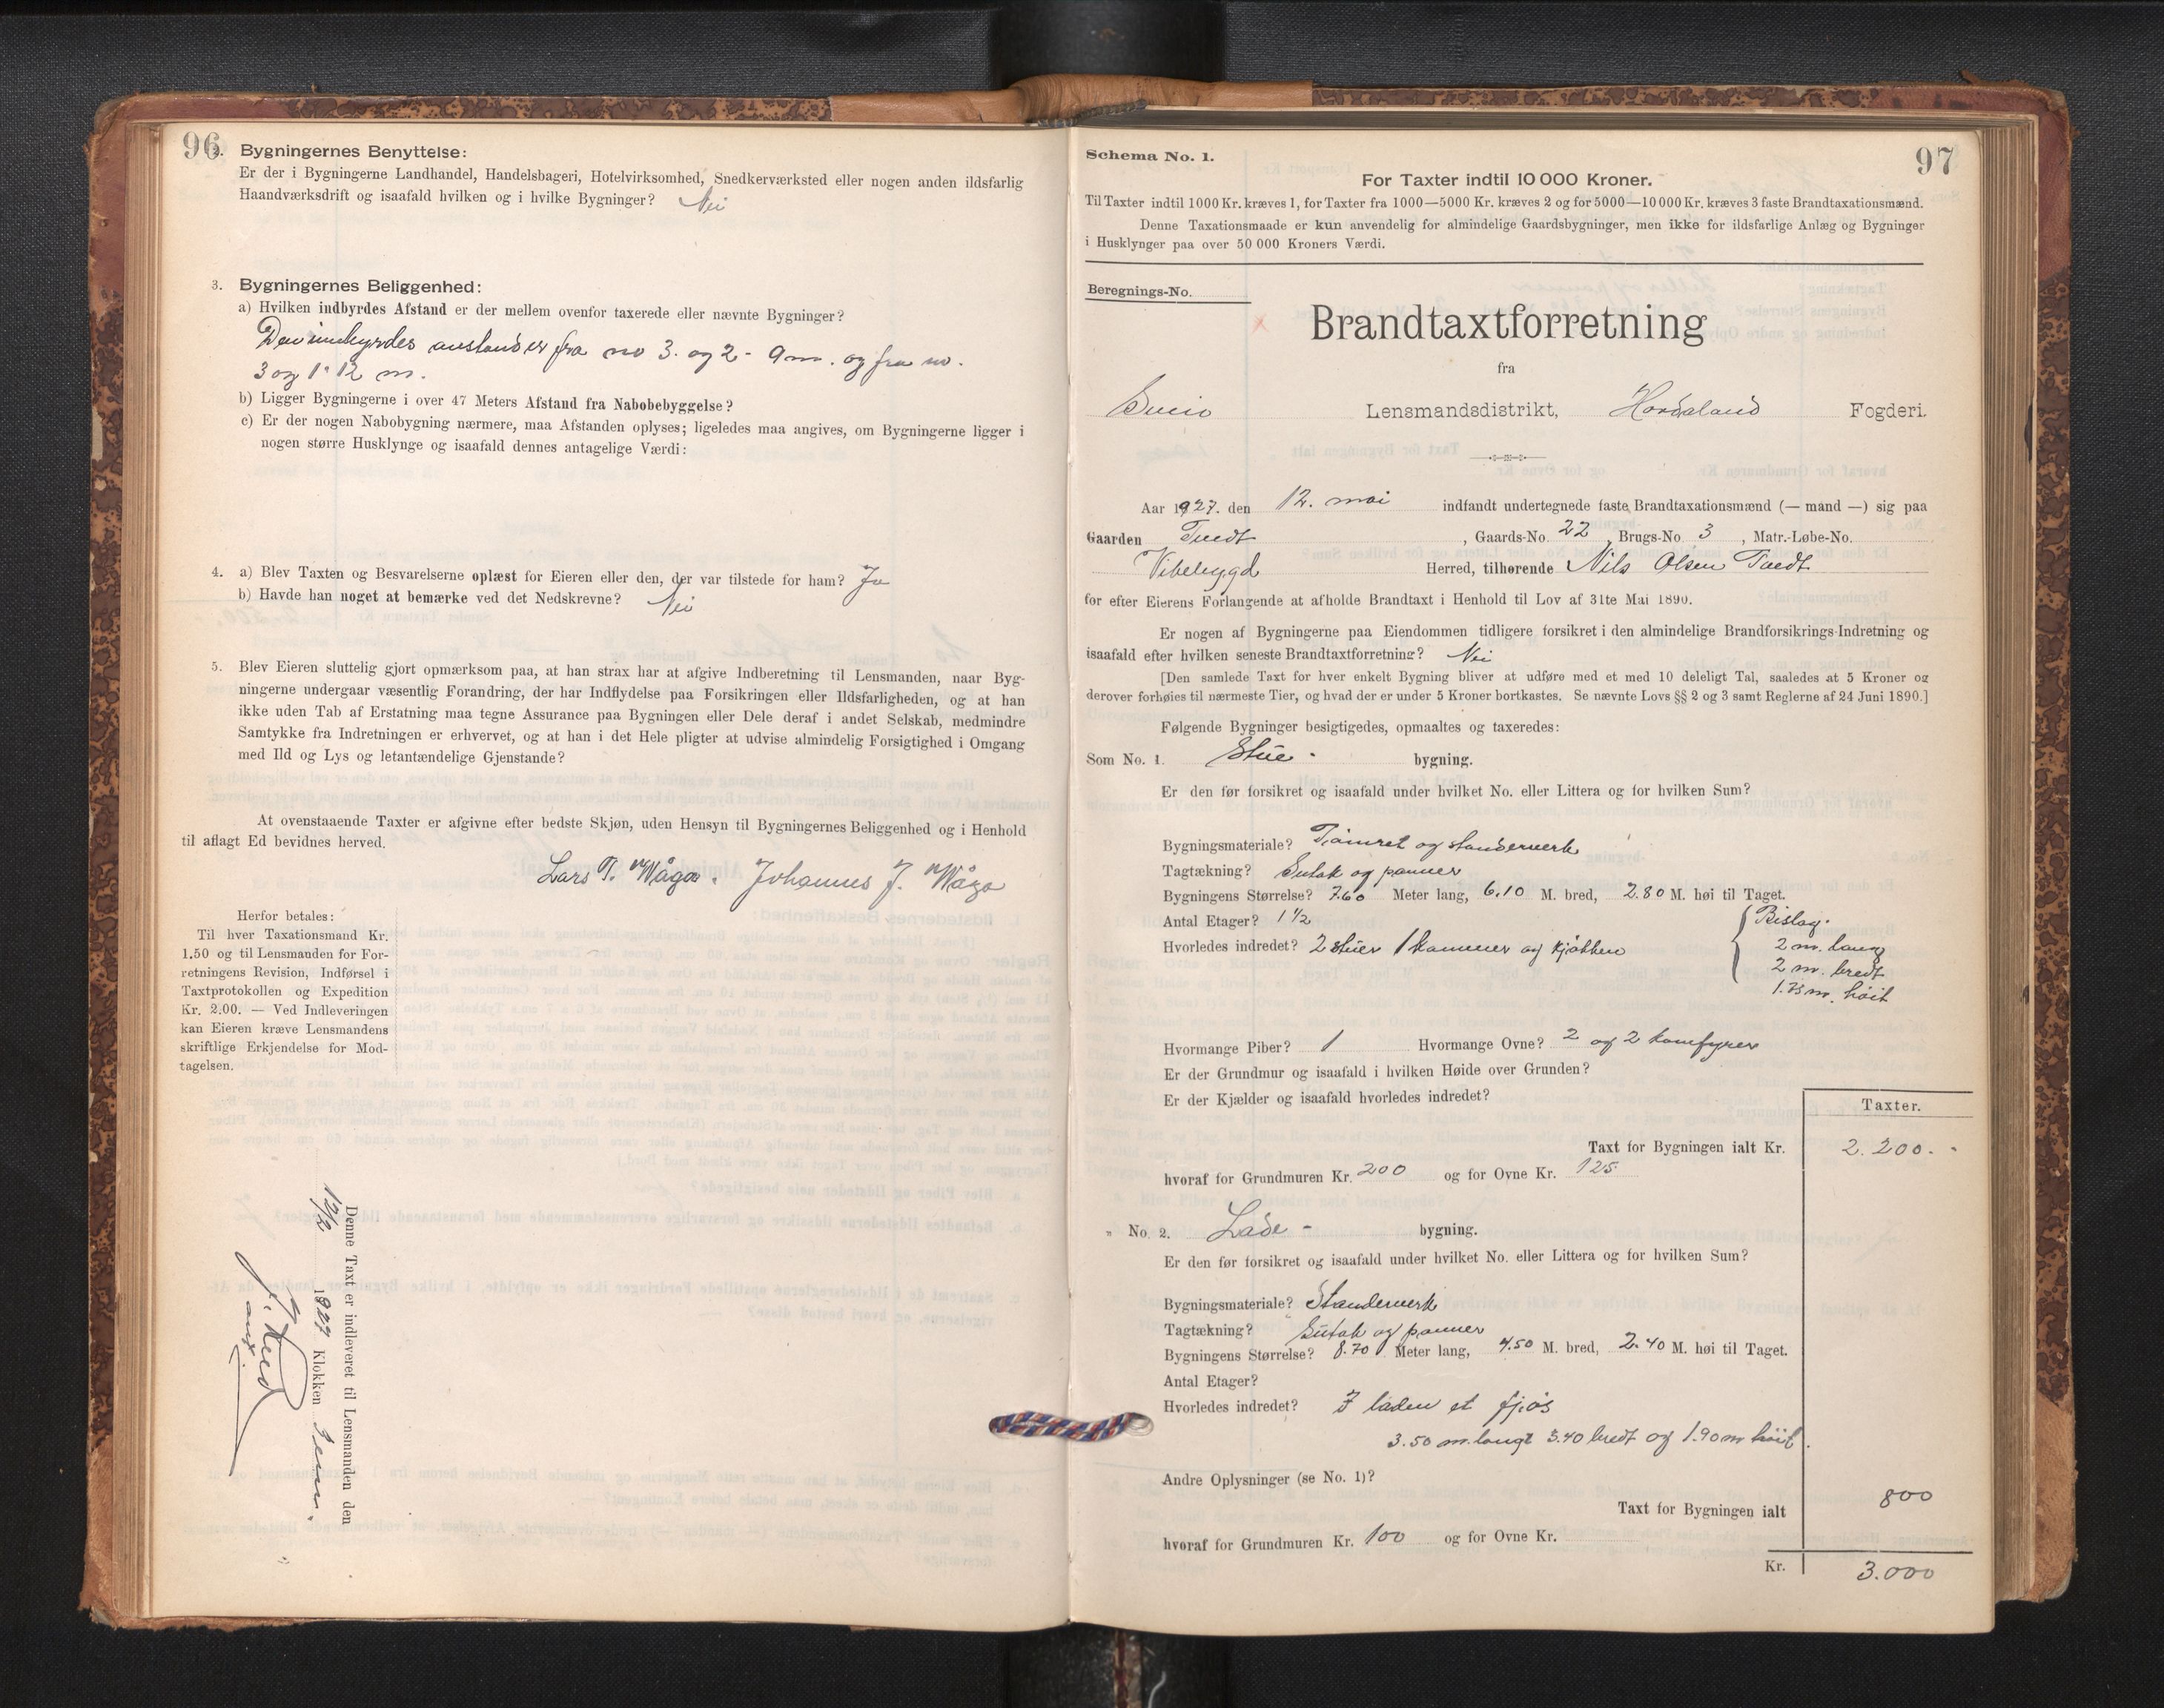 96
2. Bygningernes Benyttelse:
Er der i Bygningerne Landhandel, Handelsbageri, Hotelvirksomhed, Snedkerværksted eller nogen anden ildsfarlig
Haandværksdrift og isaafald hvilken og i hvilke Bygninger? Nei
3. Bygningernes Beliggenhed:
a) Hvilken indbyrdes Afstand er der mellem ovenfor taxerede eller nævnte Bygninger?
Den innbyrdes avstand er fra no 3. og 2 - 9 m. og fra no.
3 og 1 - 12 m.
b) Ligger Bygningerne i over 47 Meters Afstand fra Nabobebyggelse?
c) Er der nogen Nabobygning nærmere, maa Afstanden oplyses; ligeledes maa angives, om Bygningerne ligger i
nogen større Husklynge og isaafald dennes antagelige Værdi:
4. a) Blev Taxten og Besvarelserne oplæst for Eieren eller den, der var tilstede for ham? Ja
b) Havde han noget at bemærke ved det Nedskrevne? Nei
5. Blev Eieren sluttelig gjort opmærksom paa, at han strax har at afgive Indberetning til Lensmanden, naar Byg-
ningerne undergaar væsentlig Forandring, der har Indflydelse paa Forsikringen eller Ildsfarligheden, og at han
ikke uden Tab af Erstatning maa tegne Assurance paa Bygningen eller Dele deraf i andet Selskab, medmindre
Samtykke fra Indretningen er erhvervet, og at han i det Hele pligter at udvise almindelig Forsigtighed i Omgang
med Ild og Lys og letantændelige Gjenstande?
At ovenstaaende Taxter er afgivne efter bedste Skjøn, uden Hensyn til Bygningernes Beliggenhed og i Henhold
til aflagt Ed bevidnes herved.
Lars T. Våga. Johannes J. Våga
Herfor betales:
Til hver Taxationsmand Kr.
1.50 og til Lensmanden for For-
retningens Revision, Indførsel i
Taxtprotokollen og Expedition
Kr. 2.00. — Ved Indleveringen
kan Eieren kræve Lensmandens
skriftlige Erkjendelse for Mod-
tagelsen.
Denne Taxt er indleveret til Lensmanden den
1927 Klokken
97
Schema No. 1.
For Taxter indtil 10 000 Kroner.
Til Taxter indtil 1000 Kr. kræves 1, for Taxter fra 1000—5000 Kr. kræves 2 og for 5000—10 000 Kr. kræves 3 faste Brandtaxationsmænd.
Denne Taxationsmaade er kun anvendelig for almindelige Gaardsbygninger, men ikke for ildsfarlige Anlæg og Bygninger
i Husklynger paa over 50 000 Kroners Værdi.
Beregnings-No.
Brandtaxtforretning
fra
Sveio Lensmandsdistrikt, Hordaland Fogderi.
Aar 1927. den 12. mai indfandt undertegnede faste Brandtaxationsmænd (— mand —) sig paa
Gaarden Tvedt, Gaards-No. 22, Brugs-No. 3, Matr.-Løbe-No.
Vikebygd Herred, tilhørende Nils Olsen Tvedt
for efter Eierens Forlangende at afholde Brandtaxt i Henhold til Lov af 31te Mai 1890.
Er nogen af Bygningerne paa Eiendommen tidligere forsikret i den almindelige Brandforsikrings-Indretning og
isaafald efter hvilken seneste Brandtaxtforretning? Nei
[Den samlede Taxt for hver enkelt Bygning bliver at udføre med et med 10 deleligt Tal, saaledes at 5 Kroner og
derover forhøies til nærmeste Tier, og hvad der er under 5 Kroner bortkastes. Se nævnte Lovs §§ 2 og 3 samt Reglerne af 24 Juni 1890.]
Følgende Bygninger besigtigedes, opmaaltes og taxeredes:
Som No. 1. Stue - bygning.
Er den før forsikret og isaafald under hvilket No. eller Littera og for hvilken Sum?
Bygningsmateriale? Tømret og standerverk
Tagtækning? Sutak og panner
Bygningens Størrelse? 7.60 Meter lang, 6.10 M. bred, 2.80 M. høi til Taget.
Antal Etager? 1 1/2
Hvorledes indredet? 2 stuer 1 kammer og kjøkken
Bislag
2 m. lang
2 m. bredt
1.75 m. høit
Hvormange Piber? 1 Hvormange Ovne? 2 og 2 komfyrer
Er der Grundmur og isaafald i hvilken Høide over Grunden?
Er der Kjælder og isaafald hvorledes indredet?
Taxter.
Taxt for Bygningen ialt Kr. 2.200.-
hvoraf for Grundmuren Kr. 200 og for Ovne Kr. 125
„ No. 2. Lade - bygning.
Er den før forsikret og isaafald under hvilket No. eller Littera og for hvilken Sum?
Bygningsmateriale? Standerverk
Tagtækning? Sutak og panner
Bygningens Størrelse? 8.70 Meter lang, 4.50 M. bred, 2.40 M. høi til Taget.
Antal Etager?
Hvorledes indredet? I laden et fjøs
3.50 m. langt 3.40 bredt og 1.90 m høit.
Andre Oplysninger (se No. 1)?
Taxt for Bygningen ialt 800
hvoraf for Grundmuren Kr. 100 og for Ovne Kr.
Kr. 3.000